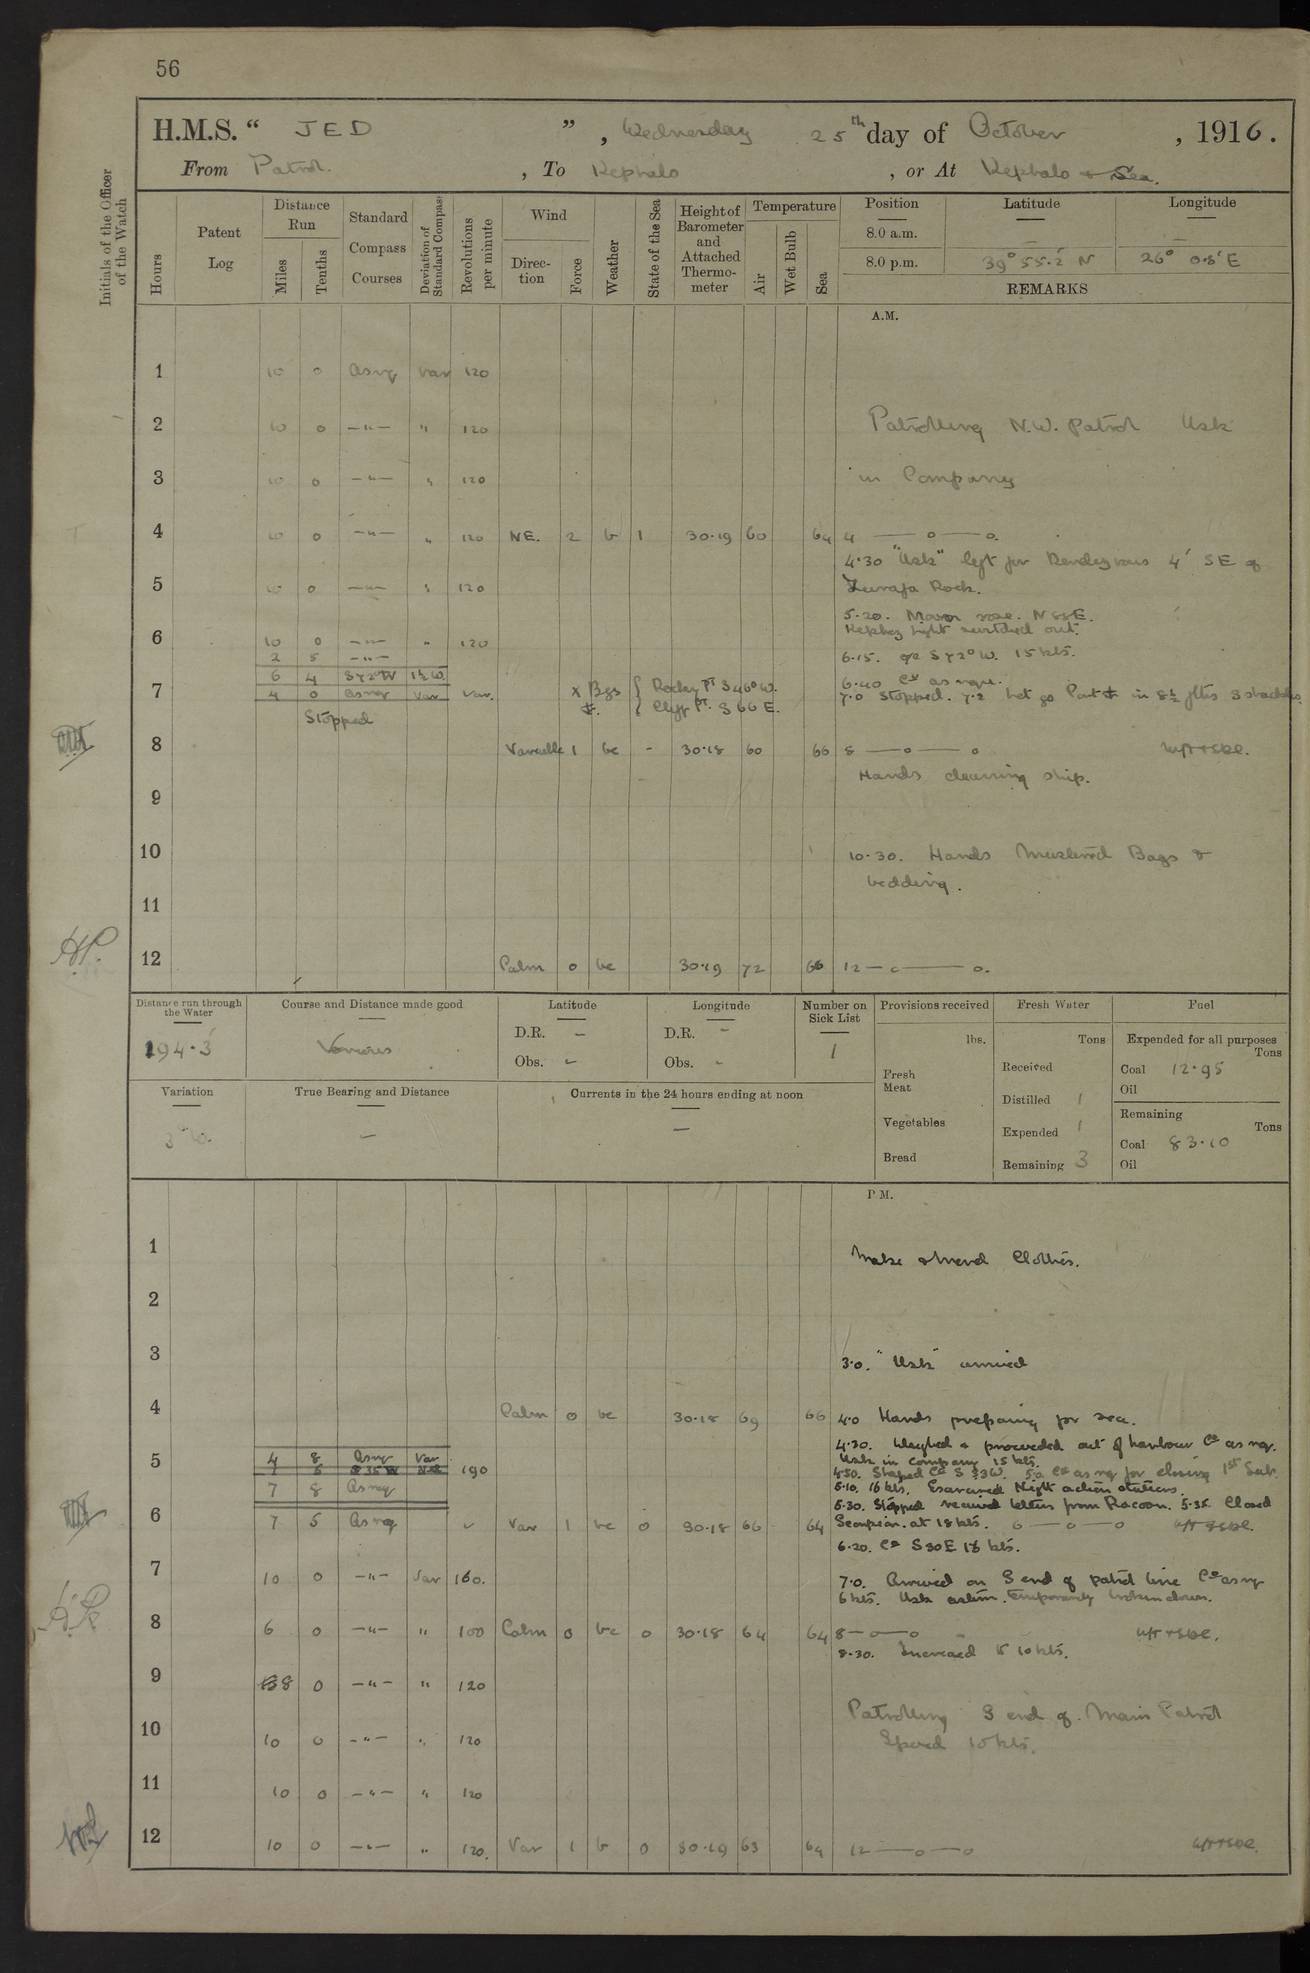 56
H.M.S. “ JED ” , Wednesday 25th day of October , 1916.
From Patrol. , To Kephalo , or At Kephalo & Sea.
Initials of the Officer of the Watch
Hours
Patent Log
Distance Run
Miles
Tenths
Standard Compass Courses
Deviation of Standard Compass
Revolutions per minute
Wind
Direction
Force
Weather
State of the Sea
Height of Barometer and Attached Thermometer
Temperature
Air
Wet Bulb
Sea
Position Latitude Longitude
8.0 a.m. — —
8.0 p.m. 39° 55.2' N 26° 0.8' E
REMARKS
A.M.
1 10 0 As req Var 120
2 10 0 —"— " 120 Patrolling N.W. Patrol Usk
3 10 0 —"— " 120 in Company
4 10 0 —"— " 120 NE. 2 b 1 30.19 60 64 4 —o—o.
4.30 "Usk" left for Rendezvous 4' SE of
5 10 0 —"— " 120 Rock.
5.20. Moon rose.
6 10 0 —"— " 120 light switched out.
2 5 —"— 6.15. S72°W. 15 kts.
6 4 S72°W 1½ W. 6.40 Co as req.
7 4 0 As req Var Var. 7.0 Stopped. 7.2 let go Port in 8½ fths 3 shackles.
Bgs { Rocky Pt S46°W.
Cliff Pt. S 66 E.
Stopped
8 Variable 1 bc - 30.18 60 66 8 —o—o
Hands cleaning ship.
9
10 10.30. Hands Mustered Bags &
bedding.
11
12 Calm 0 bc 30.19 72 66 12 —o—o.
Distance run through the Water
194.3
Course and Distance made good
Various
Latitude
D.R. -
Obs. -
Longitude
D.R. -
Obs. -
Number on Sick List
1
Provisions received
lbs.
Fresh Meat
Vegetables
Bread
Fresh Water
Tons
Received
Distilled 1
Expended 1
Remaining 3
Fuel
Expended for all purposes
Tons
Coal 12.95
Oil
Remaining
Tons
Coal 83.10
Oil
Variation
3° W.
True Bearing and Distance
—
Currents in the 24 hours ending at noon
—
P.M.
1 Make & Mend Clothes.
2
3 3.0. "Usk" arrived
4 Calm 0 bc 30.18 69 66 4.0 Hands preparing for sea.
4.30. Weighed & proceeded out of harbour Co as req.
5 4 8 As req Var 190 Usk in company 15 kts.
4.50. Shaped Co 5.0 Co as req for closing 1st Sub.
7 8 As req 5.10. 16 kts. Exercised Night action stations.
5.30. Stopped received letters from Racoon. 5.35 Closed
6 7 5 As req Var 1 bc 0 30.18 66 64 Scorpion. at 18 kts. 6 —o—o
6.20. Co S30E 18 kts.
7 10 0 —"— Var 160. 7.0. Arrived on S end of patrol line Co as req
6 kts. Usk astern. temporarily broken down.
8 6 0 —"— " 100 Calm 0 bc 0 30.18 64 64 8 —o—o
8.30. Increased to 10 kts.
9 8 0 —"— " 120
Patrolling S end of Main Patrol
10 10 0 —"— " 120 Speed 10 kts.
11 10 0 —"— " 120
12 10 0 —"— " 120. Var 1 b 0 30.19 63 64 12 —o—o